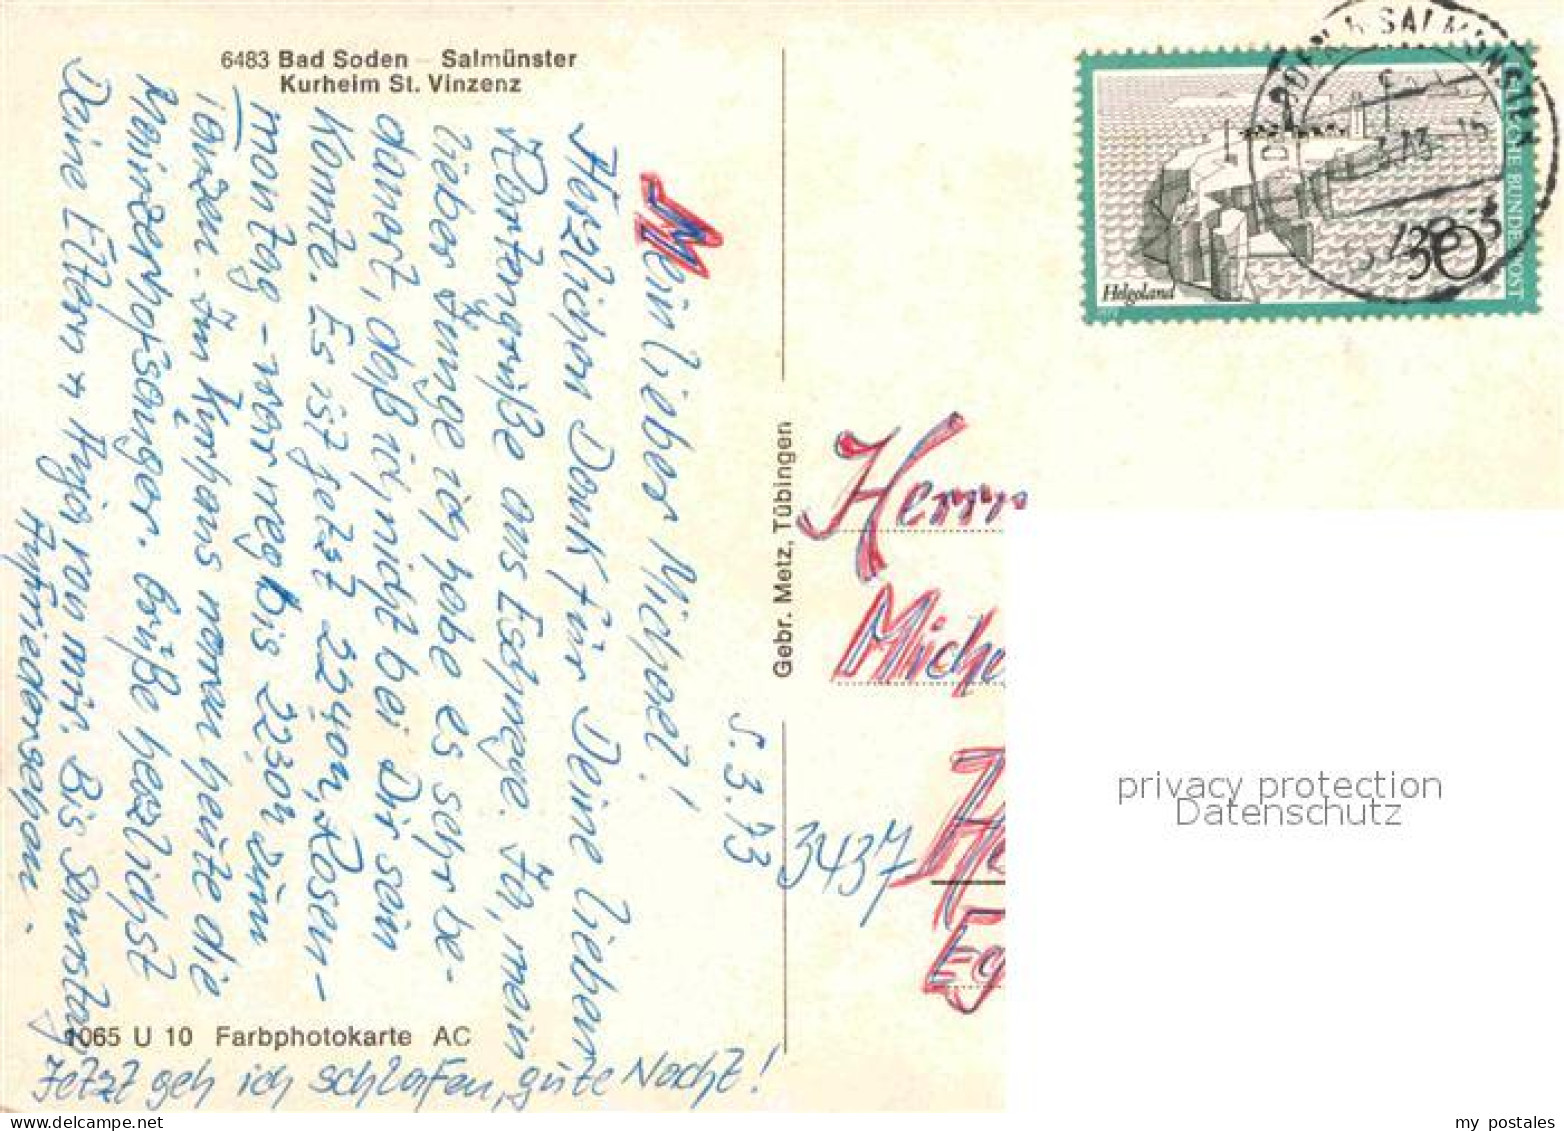 6483 Bad Soden – Salmünster
Kurheim St. Vinzenz
Mein lieber Michael!
Herzlichen Dank für Deine lieben
Kartengrüße aus Eschwege. Ja, mein
lieber Junge ich habe es sehr be-
dauert, daß ich nicht bei Dir sein
konnte. Es ist jetzt 22 Uhr, Rosen-
montag - war weg bis 22.30 Uhr zum
Tanzen. Im Kurhaus waren heute die
Mainzer Hofsänger. Grüße herzlichst
Deine Eltern u Anja von mir. Bis Samstag
Aufwiedersehen.
Jetzt geh ich schlafen, gute Nacht!
5.3.73
1065 U 10 Farbphotokarte AC
Gebr. Metz, Tübingen
SALMÜNSTER
DEUTSCHE BUNDESPOST
Helgoland
30
Herrn
Miche
3437
He
Eg
privacy protection
Datenschutz
my postales